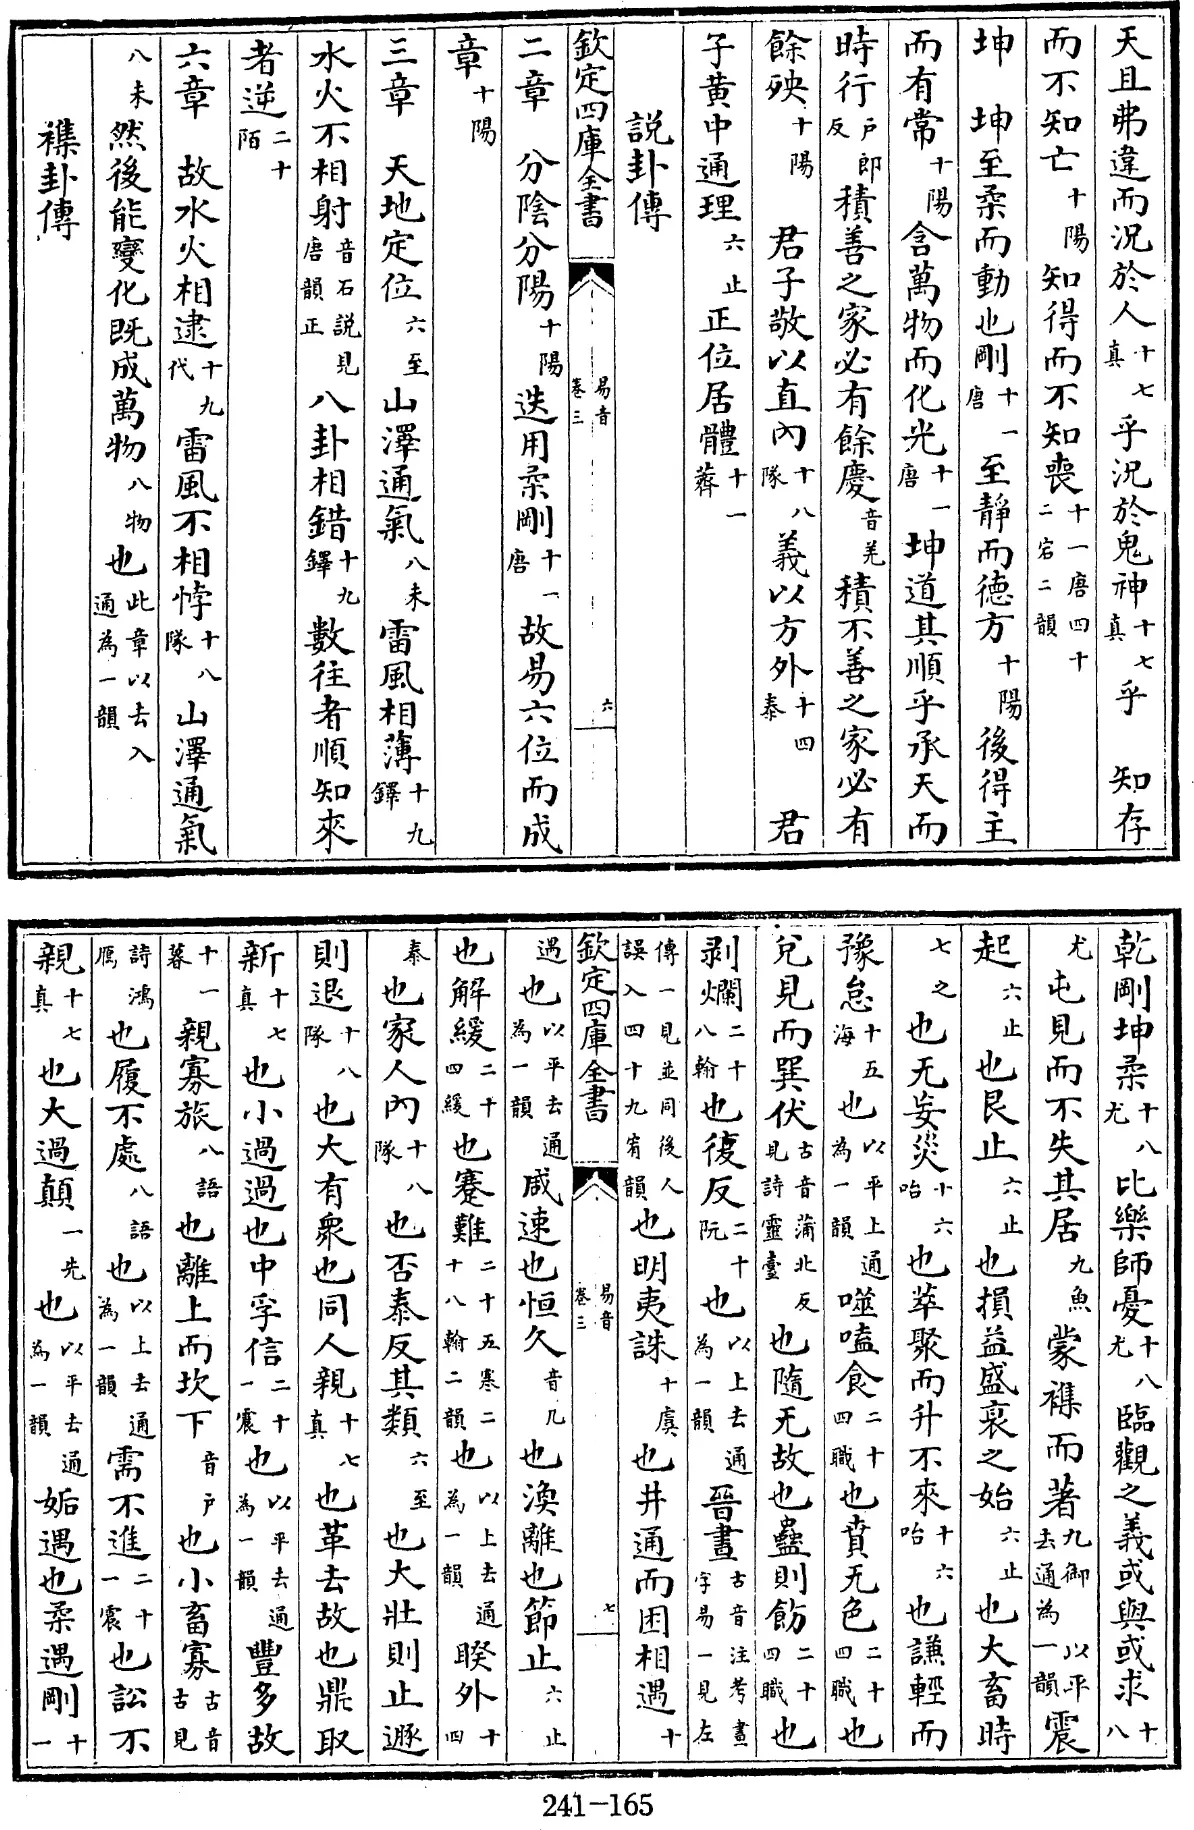 天且弗違而況於人十七真乎況於鬼神十七真乎　知存
而不知亡十陽知得而不知喪十一唐四十二宕二韻
坤　坤至柔而動也剛十一唐至靜而德方十陽後得主
而有常十陽含萬物而化光十一唐坤道其順乎承天而
時行戶郎反積善之家必有餘慶音羌積不善之家必有
餘殃十陽　君子敬以直內十八隊義以方外十四泰　君
子黃中通理六止正位居體十一薺
說卦傳
欽定四庫全書　易音卷三　六
二章　分陰分陽十陽迭用柔剛十一唐故易六位而成
章十陽
三章　天地定位六至山澤通氣八未雷風相薄十九鐸
水火不相射音石說見唐韻正八卦相錯十九鐸數往者順知來
者逆二十陌
六章　故水火相逮十九代雷風不相悖十八隊山澤通氣
八未然後能變化既成萬物八物也此章以去入通為一韻
襍卦傳
乾剛坤柔十八尤比樂師憂十八尤臨觀之義或與或求十八
尤屯見而不失其居九魚蒙襍而著九御以平去通為一韻震
起六止也艮止六止也損益盛衰之始六止也大畜時
七之也无妄災十六咍也萃聚而升不來十六咍也謙輕而
豫怠十五海也以平上通為一韻噬嗑食二十四職也賁无色二十四職也
兌見而巽伏古音蒲北反見詩靈臺也隨无故也蠱則飭二十四職也
剥爛二十八翰也復反二十阮也以上去通為一韻晉晝古音注考晝字易一見左
傳一見並同後人誤入四十九宥韻也明夷誅十虞也井通而困相遇十
欽定四庫全書　易音卷三　七
遇也以平去通為一韻咸速也恒久音几也渙離也節止六止
也解緩二十四緩也蹇難二十五寒二十八翰二韻也以上去通為一韻睽外十四
泰也家人內十八隊也否泰反其類六至也大壯則止遯
則退十八隊也大有衆也同人親十七真也革去故也鼎取
新十七真也小過過也中孚信二十一震也以平去通為一韻豐多故
十一暮親寡旅八語也離上而坎下音戶也小畜寡古音古見
詩鴻鴈也履不處八語也以上去通為一韻需不進二十一震也訟不
親十七真也大過顛一先也以平去通為一韻姤遇也柔遇剛十一
241-165